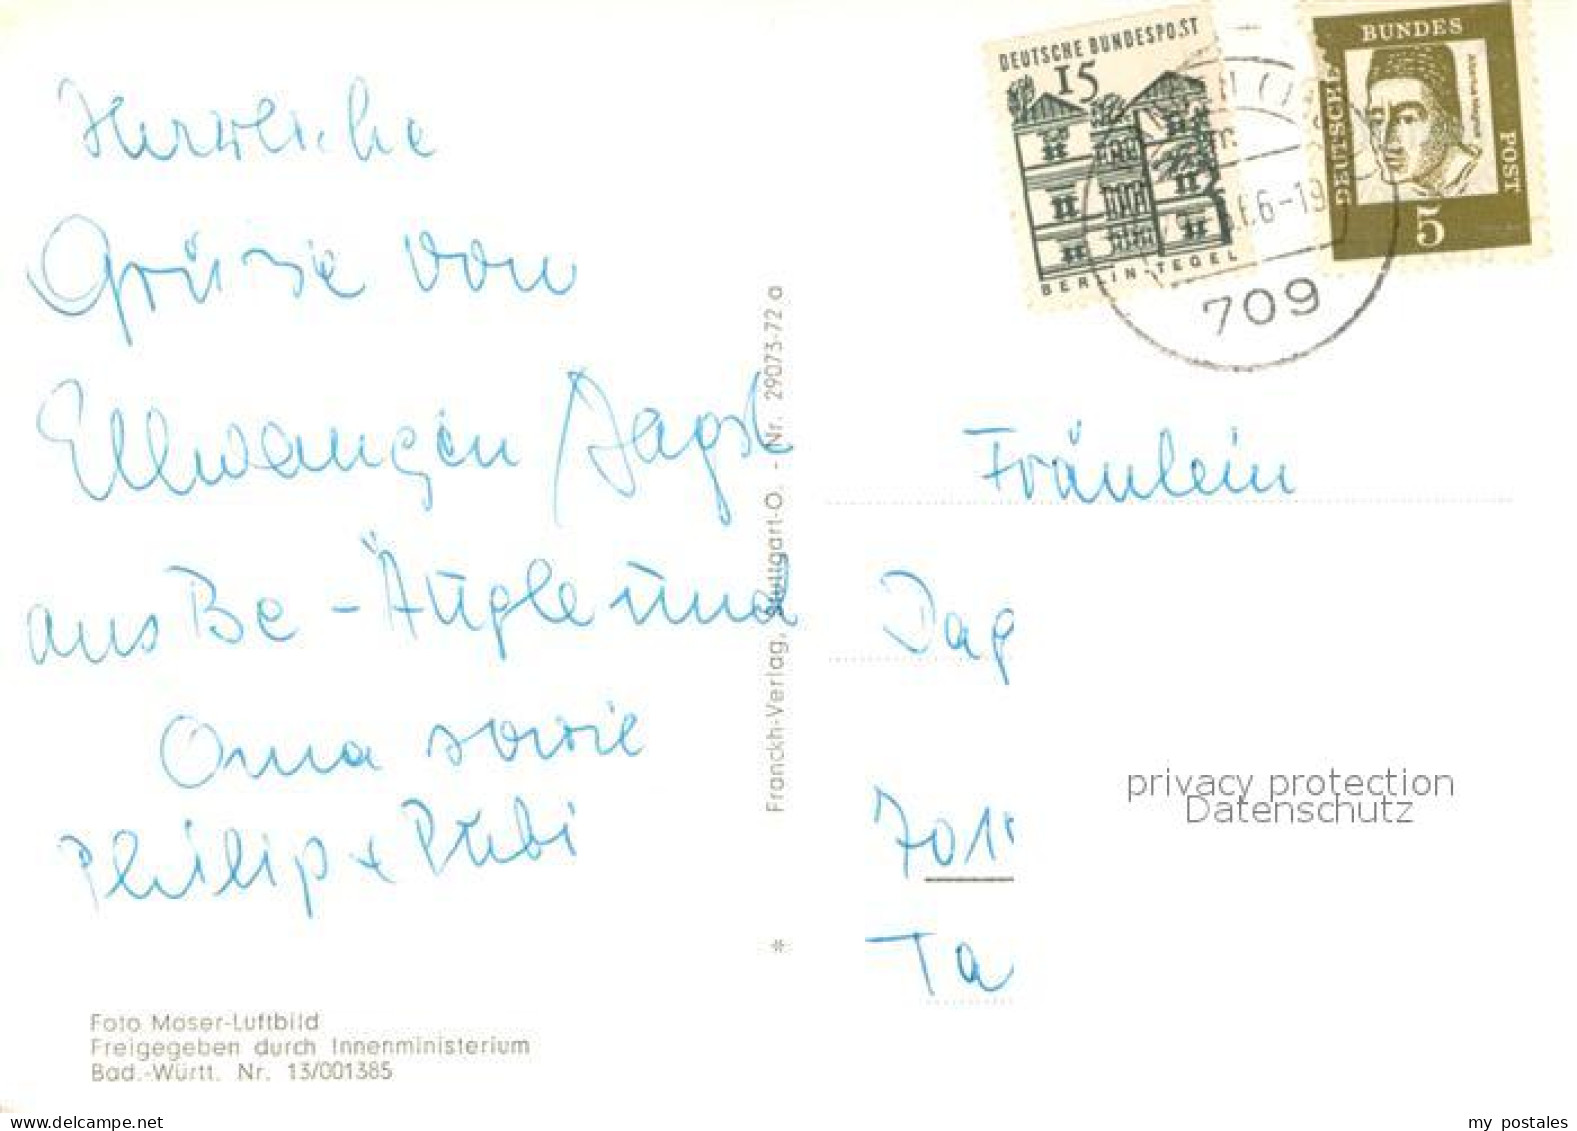 Herzliche
Grüsse von
Ellwangen Jagst
aus Be-Äugle und
Oma sowie
Philip +
Foto Moser-Luftbild
Freigegeben durch Innenministerium
Bad.-Württ. Nr. 13/001385
Franckh-Verlag, Stuttgart-O. - Nr. 29073-72 a
DEUTSCHE BUNDESPOST
15
BERLIN-TEGEL
BUNDES
DEUTSCHE
POST
Albertus Magnus
5
66-19
709
Fräulein
Dag
701
Ta
privacy protection
Datenschutz
my postales